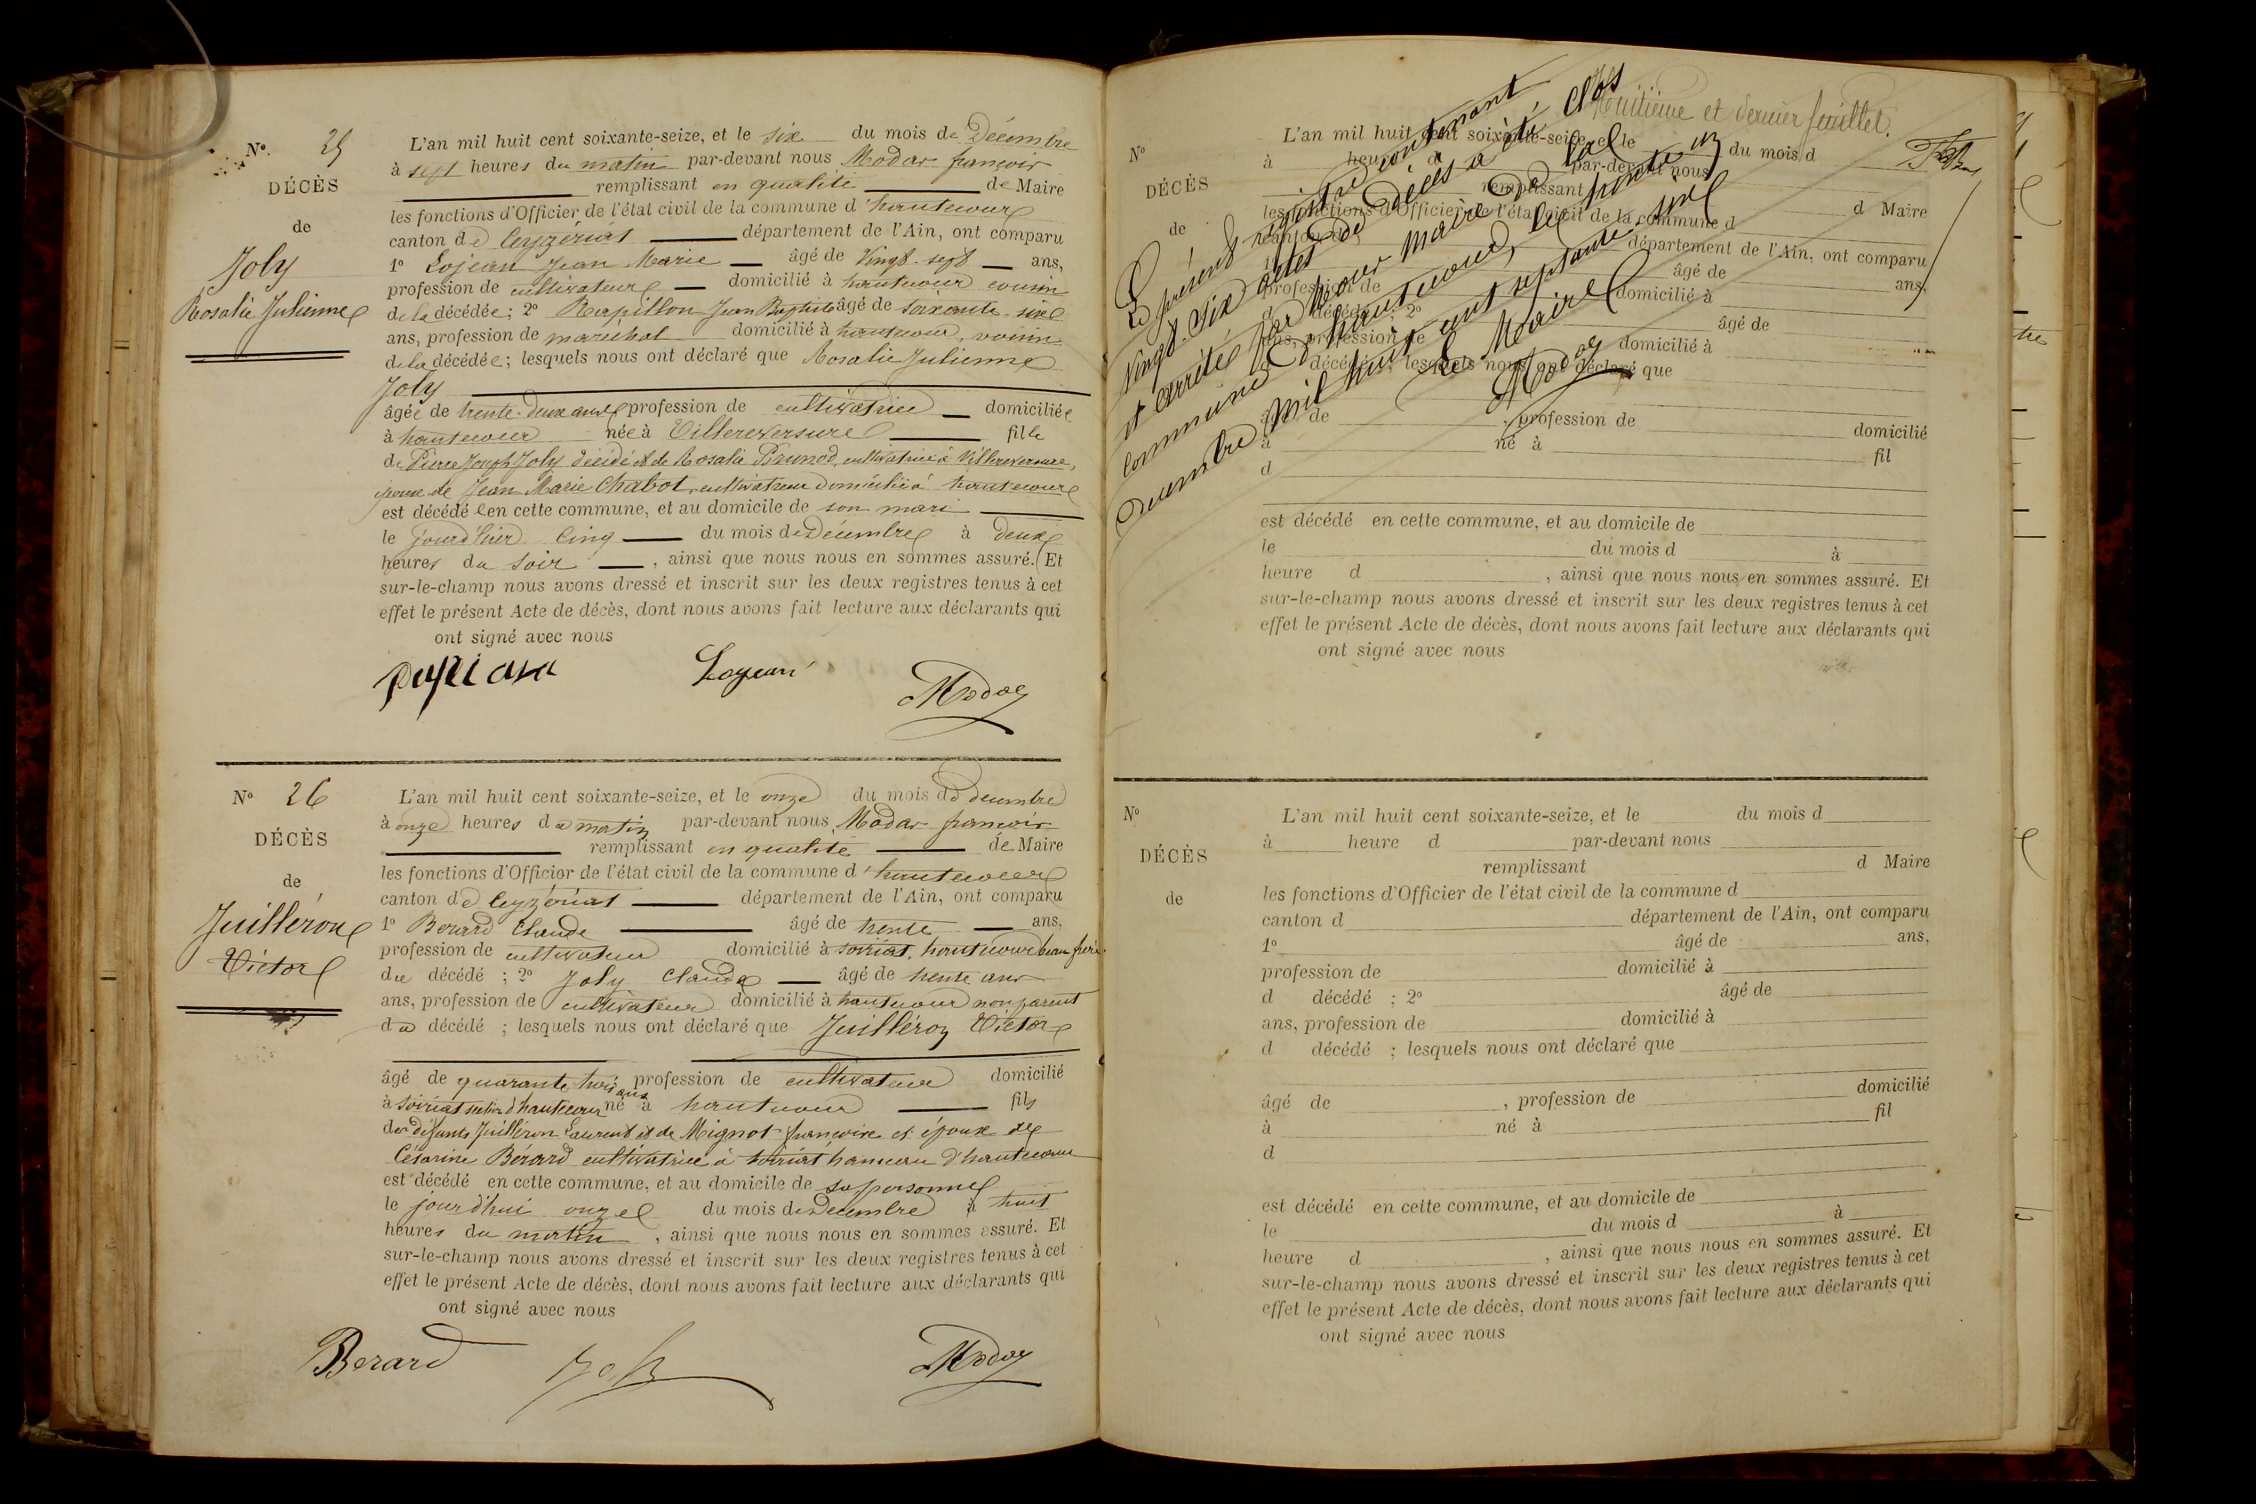 N° 25
DÉCÈS
de
Joly
Rosalie Julienne
L'an mil huit cent soixante-seize, et le six du mois de Décembre
à sept heures du matin par-devant nous Modas françois
remplissant en qualité de Maire
les fonctions d'Officier de l'état civil de la commune d'hautecour
canton de Ceyzériat département de l'Ain, ont comparu
1° Lojean Jean Marie âgé de Vingt-sept ans,
profession de cultivateur domicilié à hautecour cousin
de la décédée; 2° Rapillon Jean Baptiste âgé de soixante-six
ans, profession de maréchal domicilié à hautecour, voisin
de la décédée; lesquels nous ont déclaré que Rosalie Julienne
Joly
âgée de trente-deux ans profession de cultivatrice domiciliée
à hautecour née à Villereversure fille
de Pierre Joseph Joly décédé et de Rosalie Brunod, cultivatrice à Villereversure,
épouse de Jean Marie Chabot, cultivateur domicilié à hautecour
est décédée en cette commune, et au domicile de son mari
le jourd'hier cinq du mois de Décembre à deux
heures du soir, ainsi que nous nous en sommes assuré. Et
sur-le-champ nous avons dressé et inscrit sur les deux registres tenus à cet
effet le présent Acte de décès, dont nous avons fait lecture aux déclarants qui
ont signé avec nous
Lojean Modas
N° 26
DÉCÈS
de
Juilléron
Victor
L'an mil huit cent soixante-seize, et le onze du mois de decembre
à onze heures du matin par-devant nous Modas françois
remplissant en qualité de Maire
les fonctions d'Officier de l'état civil de la commune d'hautecour
canton de Ceyzériat département de l'Ain, ont comparu
1° Berard Claude âgé de trente ans,
profession de cultivateur domicilié à soiriat, hautecour beau frère
du décédé; 2° Joly Claude âgé de trente ans
ans, profession de cultivateur domicilié à hautecour non parent
du décédé; lesquels nous ont déclaré que Juilléron Victor
âgé de quarante trois ans profession de cultivateur domicilié
à soiriat section d'hautecour né à hautecour fils
des défunts Juilléron Laurent et de Mignot françoise et époux de
Césarine Bérard cultivatrice à soiriat hameau d'hautecour
est décédé en cette commune, et au domicile de sa personne
le jourd'hui onze du mois de Décembre à huit
heures du matin, ainsi que nous nous en sommes assuré. Et
sur-le-champ nous avons dressé et inscrit sur les deux registres tenus à cet
effet le présent Acte de décès, dont nous avons fait lecture aux déclarants qui
ont signé avec nous
Berard Joly Modas
huitième et dernier feuillet.
Le présent registre contenant
Vingt-six actes de décès a été clos
et arrêté par Nous Maire de la
commune d'hautecour, le trente un
decembre mil huit cent septante-six
Le Maire
Modas
N°
DÉCÈS
de
L'an mil huit cent soixante-seize, et le du mois d
à heure d par-devant nous
remplissant d Maire
les fonctions d'Officier de l'état civil de la commune d
canton d département de l'Ain, ont comparu
1° âgé de ans,
profession de domicilié à
d décédé ; 2° âgé de
ans, profession de domicilié à
d décédé ; lesquels nous ont déclaré que
âgé de , profession de domicilié
à né à fil
d
est décédé en cette commune, et au domicile de
le du mois d à
heure d , ainsi que nous nous en sommes assuré. Et
sur-le-champ nous avons dressé et inscrit sur les deux registres tenus à cet
effet le présent Acte de décès, dont nous avons fait lecture aux déclarants qui
ont signé avec nous
N°
DÉCÈS
de
L'an mil huit cent soixante-seize, et le du mois d
à heure d par-devant nous
remplissant d Maire
les fonctions d'Officier de l'état civil de la commune d
canton d département de l'Ain, ont comparu
1° âgé de ans,
profession de domicilié à
d décédé ; 2° âgé de
ans, profession de domicilié à
d décédé ; lesquels nous ont déclaré que
âgé de , profession de domicilié
à né à fil
d
est décédé en cette commune, et au domicile de
le du mois d à
heure d , ainsi que nous nous en sommes assuré. Et
sur-le-champ nous avons dressé et inscrit sur les deux registres tenus à cet
effet le présent Acte de décès, dont nous avons fait lecture aux déclarants qui
ont signé avec nous